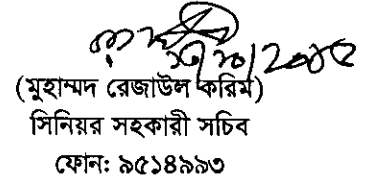 (মুহাম্মদ রেজাউল করিম)
সিনিয়র সহকারী সচিব
ফোন: ৯৫১৪৯৯৩